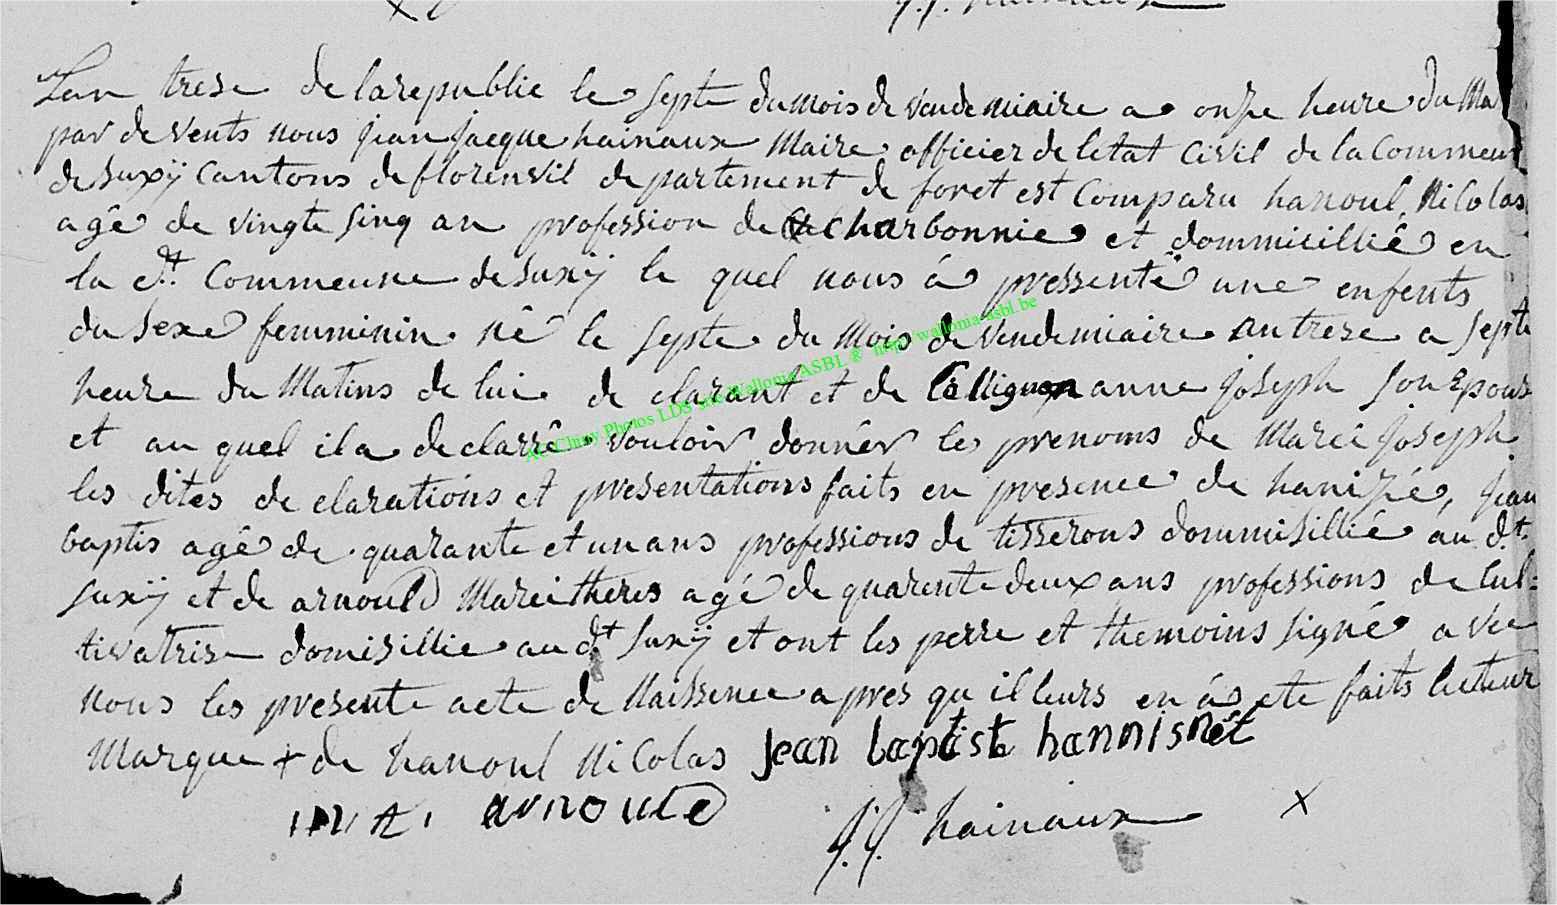 J.J. hainaux
Lan trese de larepublic le septe du mois de vendemiaire a onze heure du Ma
par de vents nous jean jacque hainaux Maire officier de letat Civil de la Commeun
de suxÿ Cantons de florenvil departement de foret est Comparu hanoul, Nicolas
agê de vingte sinq an profession de charbonnie et dommicilliê en
la dtt Commeune de suxÿ le quel nous á pressentê une enfents
du sexe femminin nê le septe du Mois de vendemiaire an trese a septe
heure du Matins de lui de clarant et de Collignon anne joseph son Epous
et au quel il a declarrê vouloir donnér les prenoms de Marei joseph
les dites de clarations et presentations faits en presence de hanizié, jean
baptis agê de quarante et un ans professions de tisserons dommisilliê au d.t
suxÿ et de arnould Marei theres agé de quarente deux ans professions de Cul=
tivatrise domisillie au dt suxÿ et ont les perre et themoins signé avec
nous les presente acte de Naissence apres qu il leurs en ás ete faits lecteur
Marque + de hanoul Nicolas jean baptiste hannisnêt
arnould
J.J. hainaux
AC Chiny Photos LDS site Wallonia ASBL ® http://wallonia-asbl.be